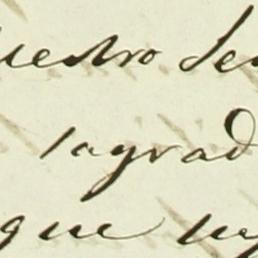 uestro Se
sagrad
que